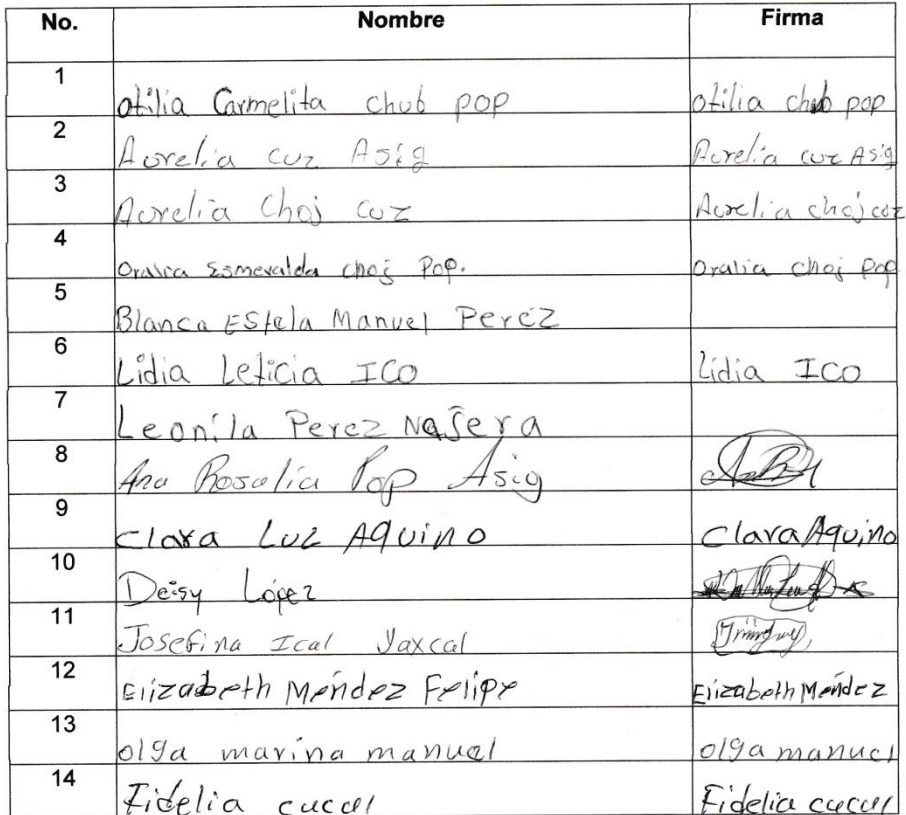 No. Nombre Firma
1 otilia Carmelita chub pop otilia chub pop
2 Aurelia cuz Asig Aurelia cuz Asig
3 Aurelia Choj cuz Aurelia choj coz
4 Oralia Esmeralda choj Pop. Oralia choj Pop
5 Blanca EStela Manuel Perez
6 Lidia Leticia ICO Lidia ICO
7 Leonila Perez Najera
8 Ana Rosalia Pop Asig
9 Clara Luz Aquino Clara Aquino
10 Deisy López
11 Josefina Ical Yaxcal
12 Elizabeth Méndez Felipe Elizabeth Méndez
13 olga marina manuel olga manuel
14 Fidelia cucul Fidelia cucul